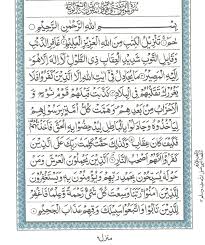 بِسْمِ اللهِ الرَّحْمٰنِ الرَّحِيْمِ
حٰمٓ تَنْزِيْلُ الْكِتٰبِ مِنَ اللهِ الْعَزِيْزِ الْعَلِيْمِ غَافِرِ الذَّنْبِ
وَقَابِلِ التَّوْبِ شَدِيْدِ الْعِقَابِ ذِى الطَّوْلِ لَاۤ اِلٰهَ اِلَّا هُوَ
اِلَيْهِ الْمَصِيْرُ مَا يُجَادِلُ فِىْۤ اٰيٰتِ اللهِ اِلَّا الَّذِيْنَ كَفَرُوْا فَلَا
يَغْرُرْكَ تَقَلُّبُهُمْ فِى الْبِلَادِ كَذَّبَتْ قَبْلَهُمْ قَوْمُ نُوْحٍ وَّ
الْاَحْزَابُ مِنْۢ بَعْدِهِمْ وَهَمَّتْ كُلُّ اُمَّةٍۢ بِرَسُوْلِهِمْ
لِيَاْخُذُوْهُ وَجَادَلُوْا بِالْبَاطِلِ لِيُدْحِضُوْا بِهِ الْحَقَّ فَاَخَذْتُهُمْ
فَكَيْفَ كَانَ عِقَابِ وَكَذٰلِكَ حَقَّتْ كَلِمَتُ رَبِّكَ عَلَى الَّذِيْنَ
كَفَرُوْۤا اَنَّهُمْ اَصْحٰبُ النَّارِ اَلَّذِيْنَ يَحْمِلُوْنَ الْعَرْشَ وَمَنْ
حَوْلَهٗ يُسَبِّحُوْنَ بِحَمْدِ رَبِّهِمْ وَيُؤْمِنُوْنَ بِهٖ وَيَسْتَغْفِرُوْنَ
لِلَّذِيْنَ اٰمَنُوْا رَبَّنَا وَسِعْتَ كُلَّ شَىْءٍ رَّحْمَةً وَّعِلْمًا فَاغْفِرْ
لِلَّذِيْنَ تَابُوْا وَاتَّبَعُوْا سَبِيْلَكَ وَقِهِمْ عَذَابَ الْجَحِيْمِ
منزل٦